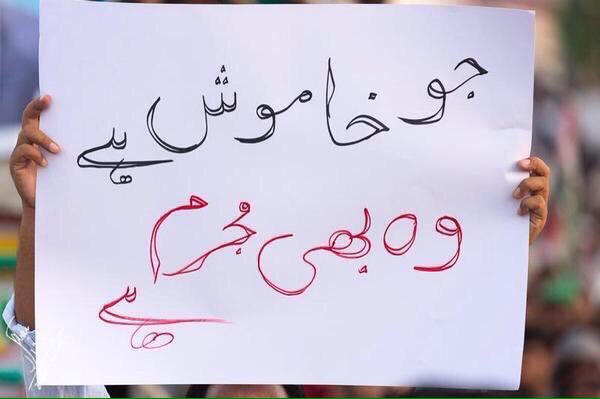 جو خاموش ہے
وہ بھی مُجرم
ہے